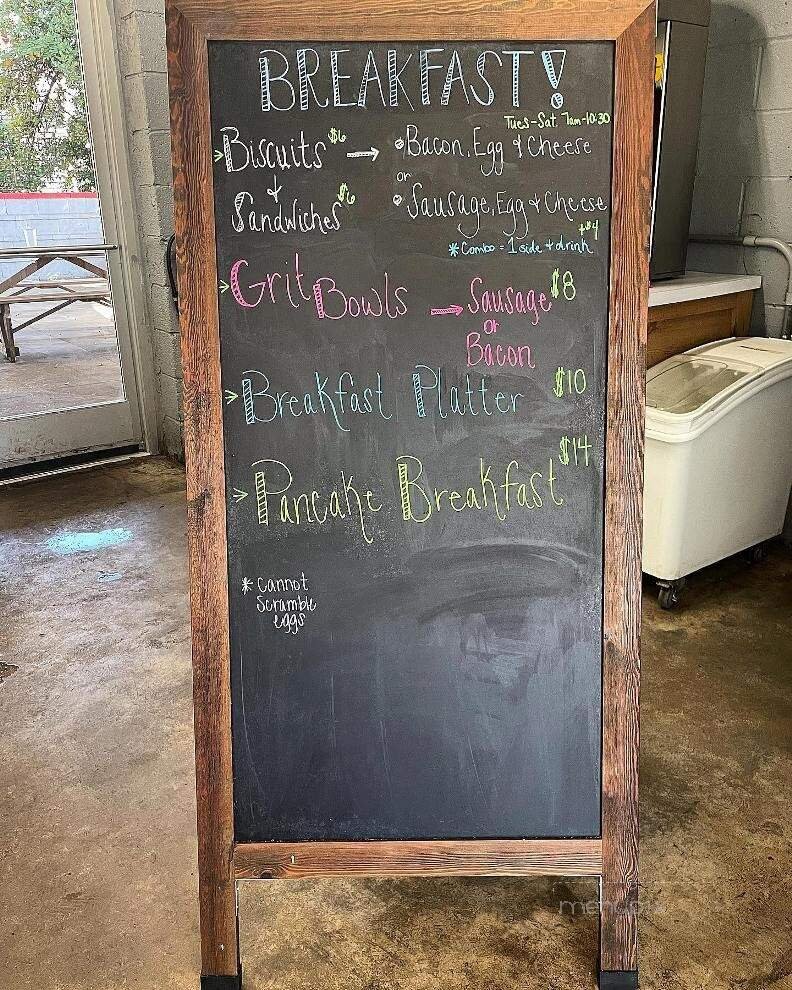 BREAKFAST!
Tues-Sat 7am-10:30
> Biscuits $6 → Bacon, Egg & Cheese
+ or
Sandwiches $6 Sausage, Egg + Cheese
+$4
* Combo = 1 side + drink
> Grit Bowls → Sausage $8
or
Bacon
> Breakfast Platter $10
> Pancake Breakfast $14
* Cannot
Scramble
eggs